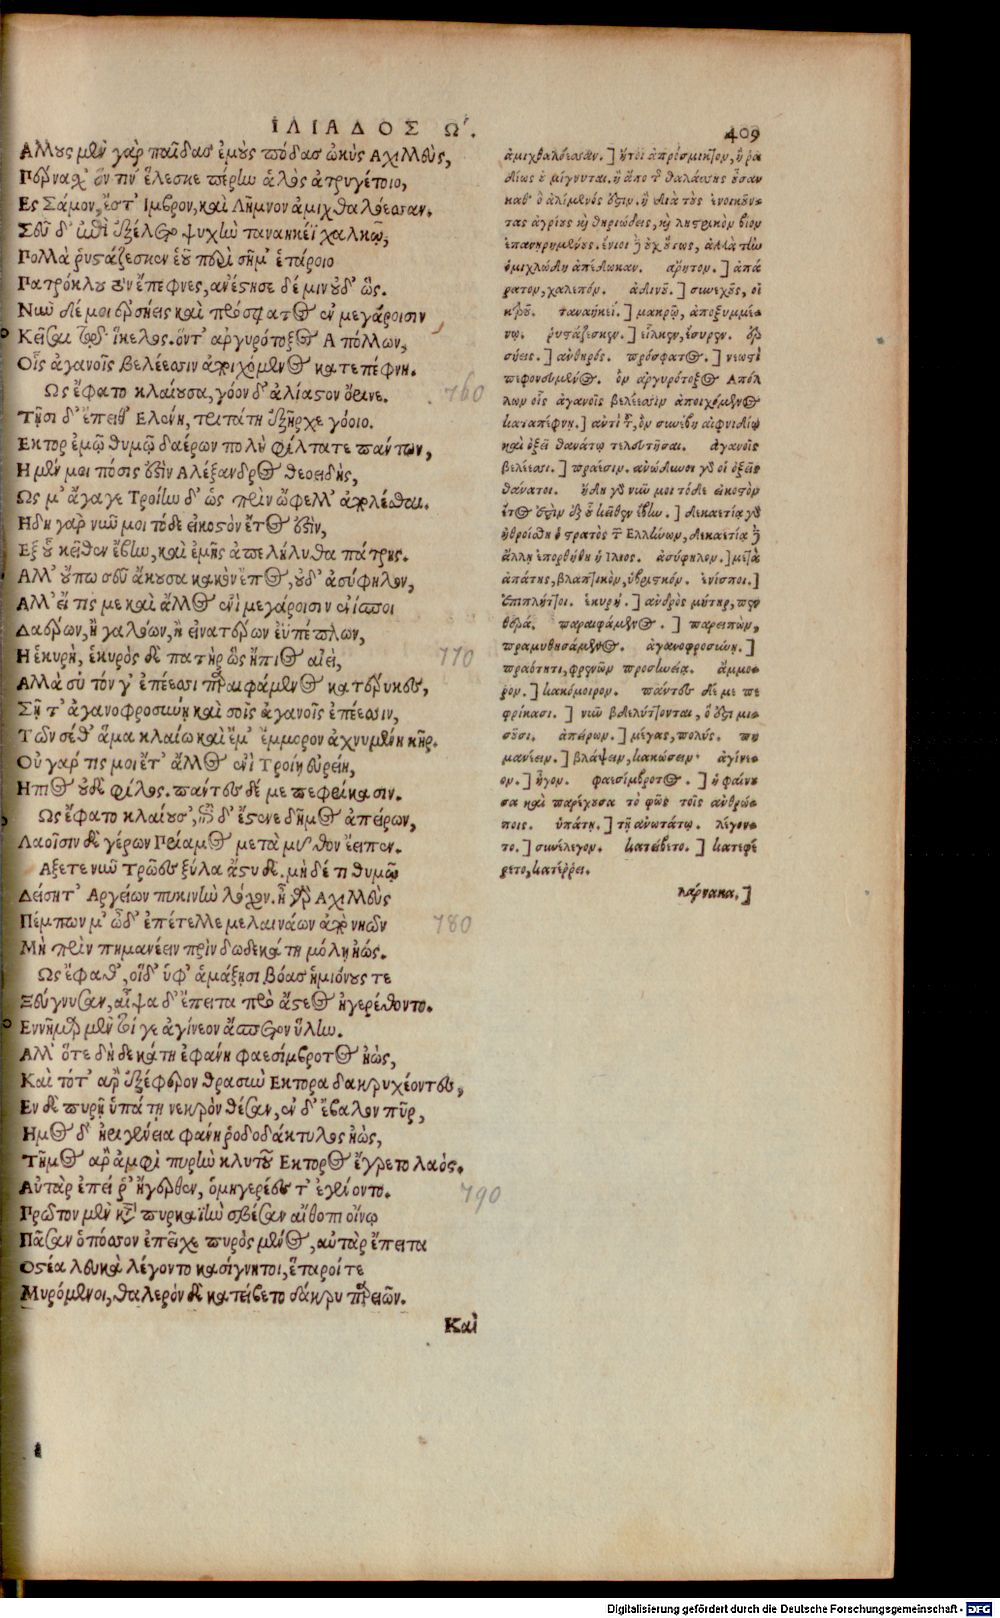 ΙΛΙΑΔΟΣ Ω΄.
409
Αλλους μὲν γὰρ παῖδασ ἐμοὺς πόδασ ὠκὺς Αχιλλεὺς,
Πέρναχ' ὅν τιν' ἕλεσκε πέρίω ἁλὸς ἀτρυγέτοιο,
Ες Σάμον, ἔστ' Ιμβρον, καὶ Λῆμνον ἀμιχθαλόεσσαν.
Σεῦ δ' ἐπεὶ ἐξέλετο ψυχὴν ταναηκέϊ χαλκῷ,
Πολλὰ ῥυστάζεσκεν ἑοῦ περὶ σῆμ' ἑτάροιο
Πατρόκλου τὸν ἔπεφνες, ἀνέστησε δέ μιν οὐδ' ὥς.
Νιῦ δέ μοι ἑρσήεις καὶ πρόσφατος ἐν μεγάροισιν
Κεῖσαι τῷδ' ἴκελος. ὅντ' αργυρότοξος Απόλλων,
Οἷς ἀγανοῖς βελέεσσιν ἀποιχόμενος κατεπέφνῃ.
Ως ἔφατο κλαίουσα, γόον δ' ἀλίαστον ὄρινε.
760
Τῇσι δ' ἔπειθ' Ελένη, τριτάτη ἐξῆρχε γόοιο.
Εκτορ ἐμῷ θυμῷ δαέρων πολὺ φίλτατε πάντων,
Η μέν μοι πόσις ἐστὶν Αλέξανδρος θεοειδὴς,
Ως μ' ἄγαγε Τροίην δ' ὡς πρὶν ὤφελλ' ἀπολέσθαι.
Ηδη γὰρ νιῦ μοι τόδε εἰκοστὸν ἔτος ἐστὶν,
Εξ οὗ κεῖθεν ἔβην, καὶ ἐμῆς ἀπελήλυθα πάτρης.
Αλλ' οὔπω σεῦ ἄκουσα κακὸν ἔπος, οὐδ' ἀσύφηλον,
Αλλ' εἴ τίς με καὶ ἄλλος ἐνὶ μεγάροισιν ἐνίπτοι
Δαέρων, ἢ γαλόων, ἢ εἰνατέρων εὐπέπλων,
Η ἑκυρὴ, ἑκυρὸς δὲ πατὴρ ὣς ἤπιος αἰεὶ,
770
Αλλὰ σὺ τόν γ' ἐπέεσσι παραιφάμενος κατέρυκες,
Σῇ τ' ἀγανοφροσύνῃ καὶ σοῖς ἀγανοῖς ἐπέεσσιν,
Τῶν σέθ' ἅμα κλαίω καὶ ἔμ' ἔμμορον ἀχνυμένη κῆρ.
Οὐ γάρ τις μοι ἔτ' ἄλλος ἐνὶ Τροίῃ εὐρείῃ,
Ηπιος οὐδὲ φίλος. πάντες δέ με πεφρίκασιν.
Ως ἔφατο κλαίουσ', ἐπὶ δ' ἔστενε δῆμος ἀπείρων,
Λαοῖσιν δὲ γέρων Πρίαμος μετὰ μῦθον ἔειπεν.
Αξετε νιῦ Τρῶες ξύλα ἄστυ δὲ. μὴ δέ τι θυμῷ
Δείσητ' Αργείων πυκινὸν λόχον. ἦ γὰρ Αχιλλεὺς
Πέμπων μ' ὧδ' ἐπέτελλε μελαινάων ἀπὸ νηῶν
780
Μὴ πρὶν πημανέειν πρὶν δωδεκάτη μόλῃ ἠώς.
Ως ἔφαθ', οἵδ' ὑφ' ἁμάξῃσι βόασ ἡμιόνους τε
Ζεύγνυσαν, αἶψα δ' ἔπειτα πρὸ ἄστεος ἠγερέθοντο.
Εννῆμαρ μὲν τοί γε ἀγίνεον ἄσπετον ὕλην.
Αλλ' ὅτε δὴ δεκάτη ἐφάνη φαεσίμβροτος ἠὼς,
Καὶ τότ' αρ' ἐξέφερον θρασιὺ Εκτορα δακρυχέοντες,
Εν δὲ πυρῇ ὑπάτῃ νεκρὸν θέσαν, ἐν δ' ἔβαλον πῦρ,
Ημος δ' ἠριγένεια φάνη ῥοδοδάκτυλος ἠὼς,
Τῆμος αρ' ἀμφὶ πυρὴν κλυτοῦ Εκτορος ἔγρετο λαὸς.
Αὐτὰρ ἐπεί ῥ' ἤγερθεν, ὁμηγερέες τ' ἐγένοντο.
790
Πρῶτον μὲν κατὰ πυρκαϊὴν σβέσαν αἴθοπι οἴνῳ
Πᾶσαν ὁπόσσον ἐπεῖχε πυρὸς μένος, αὐτὰρ ἔπειτα
Οστέα λευκὰ λέγοντο κασίγνητοι, ἕταροί τε
Μυρόμενοι, θαλερὸν δὲ κατείβετο δάκρυ παρειῶν.
Καὶ
ἀμιχθαλόεσσαν.] ἤτοι ἀπρόσμικτον, ᾗ ῥᾳ
δίως οὐ μίγνυται. ἢ ἀπὸ τῆς θαλάσσης οὖσαν
καθ' ὃ ἀλίμενός ἐστιν. ἢ διὰ τοὺς ἐνοικοῦν
τας ἀγρίους καὶ θηριώδεις, καὶ λῃστρικὸν βίον
ἐπανῃρημένους. ἔνιοι δὲ οὐχ οὕτως, ἀλλὰ τὴν
ὀμιχλώδη ἀπέδωκαν. ἄρητον.] ἀπά
ρατον, χαλεπόν. ἁδινοῦ.] συνεχοῦς, οἰ
κτροῦ. ταναηκεί.] μακρῷ, ἀποξυμμέ
νῳ. ῥυστάζεσκεν.] εἷλκεν, ἔσυρεν. ἑρ
σήεις.] ἀνθηρός. πρόσφατος.] νεωστὶ
πεφονευμένος. ὃν ἀργυρότοξος Απόλ
λων οἷς ἀγανοῖς βελέεσσιν ἀποιχόμενος
καταπέφνῃ.] αντὶ τοῦ, ὃν συνέβη αἰφνιδίῳ
καὶ ὀξεῖ θανάτῳ τελευτῆσαι. ἀγανοῖς
βελέεσσι.] πραέσιν. ανώδυνοι γὰρ οἱ ὀξεῖς
θάνατοι. ἤδη γὰρ νιῦ μοι τόδε εἰκοστὸν
ἔτος ἐστὶν ἐξ οὗ κεῖθεν ἔβην.] δεκαετίᾳ γὰρ
ἠθροίσθη ὁ στρατὸς τῶν Ελλήνων, δεκαετίᾳ δὲ
ἄλλῃ ἐπορθήθη ἡ Ιλιος. ἀσύφηλον.] μετὰ
ἀπάτης, βλαπτικὸν, ὑβριστικόν. ἐνίσποι.]
ἐπιπλήττοι. ἑκυρή.] ανδρὸς μήτηρ, πεν
θερά. παραιφάμενος.] παρειπὼν,
παραμυθησάμενος. ἀγανοφροσύνῃ.]
πραότητι, φρενῶν προσηνείᾳ. ἄμμο
ρον.] κακόμοιρον. πάντες δέ με πε
φρίκασι.] νιῦ βδελύττονται, ὅ ἐστι μι
σοῦσι. ἀπείρων.] μέγας, πολύς. πη
μανέειν.] βλάψειν, κακώσειν. ἀγίνε
ον.] ἦγον. φαεσίμβροτος.] ἡ φαίνου
σα καὶ παρέχουσα τὸ φῶς τοῖς ανθρώ
ποις. ὑπάτῃ.] τῇ ανωτάτῳ. λέγον
το.] συνέλεγον. κατείβετο.] κατεφέ
ρετο, κατέρρει.
λάρνακα.]
Digitalisierung gefördert durch die Deutsche Forschungsgemeinschaft - DFG